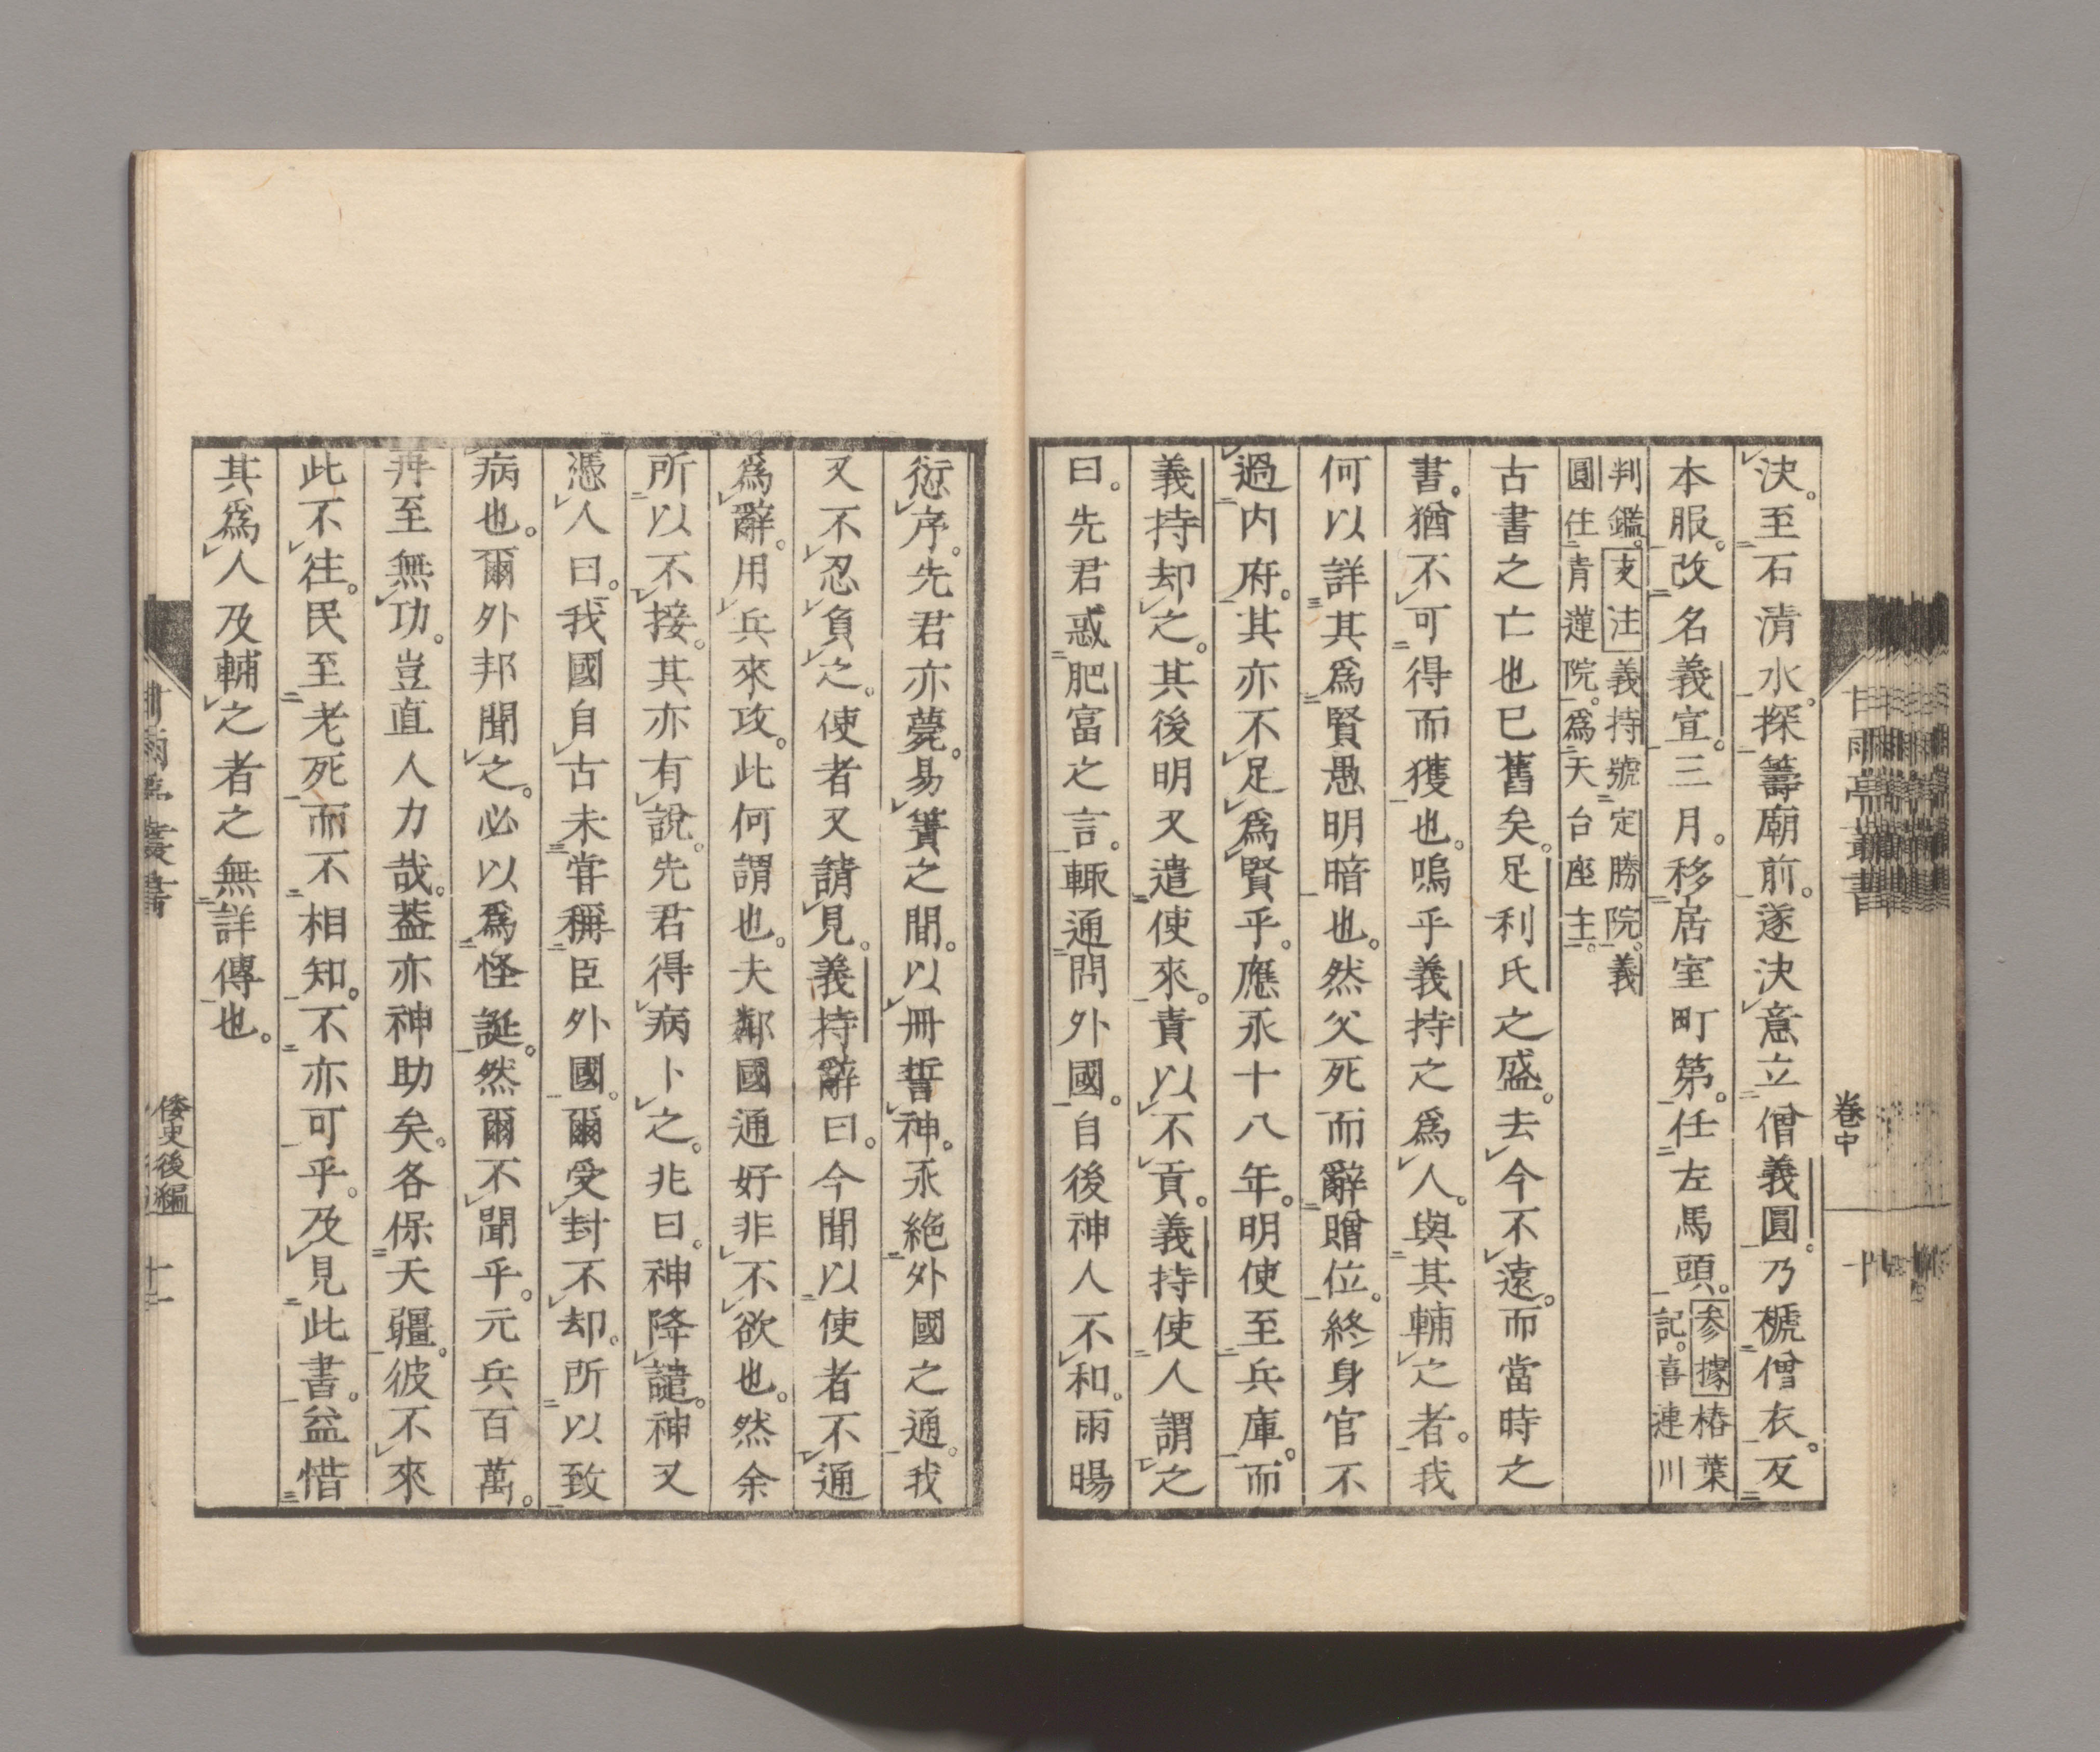 決。至石清水。探籌廟前。遂決意立僧義圓。乃褫僧衣。反
本服。改名義宣。三月。移居室町第。任左馬頭。参據椿葉
記。喜連川
判鑑。支注義持號定勝院。義
圓住青蓮院。為天台座主。
古書之亡也已舊矣。足利氏之盛。去今不遠。而當時之
書。猶不可得而獲也。嗚乎義持之為人。與其輔之者。我
何以詳其為賢愚明暗也。然父死而辭贈位。終身官不
過内府。其亦不足為賢乎。應永十八年。明使至兵庫。而
義持却之。其後明又遣使來。責以不貢。義持使人謂之
曰。先君惑肥富之言。輙通問外國。自後神人不和。雨暘
愆序。先君亦薨。易簀之間。以冊誓神。永絕外國之通。我
又不忍負之。使者又請見。義持辭曰。今聞以使者不通
為辭。用兵來攻。此何謂也。夫鄰國通好非不欲也。然余
所以不接。其亦有說。先君得病卜之。兆曰。神降譴。神又
憑人曰。我國自古未甞稱臣外國。爾受封不却。所以致
病也。爾外邦聞之。必以為怪誕。然爾不聞乎。元兵百萬。
再至無功。豈直人力哉。葢亦神助矣。各保天疆。彼不來
此不往。民至老死而不相知。不亦可乎。及見此書。益惜
其為人及輔之者之無詳傳也。
甘雨亭叢書
卷中
十
倭史後編
十一